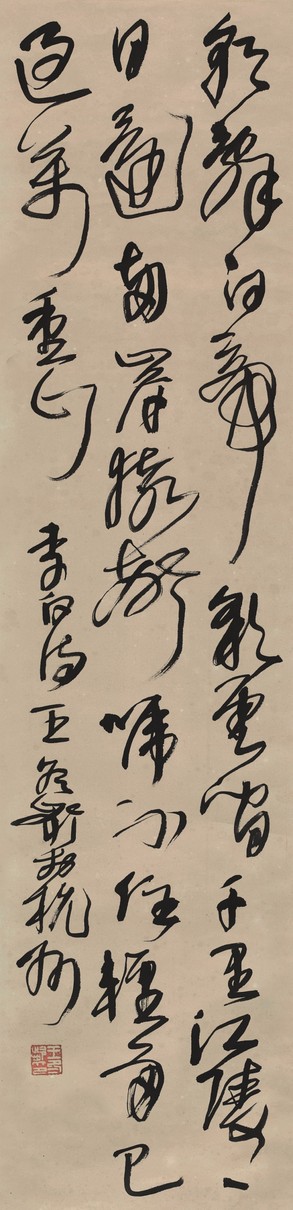 朝辭白帝彩雲間千里江陵一
日還兩岸猿聲啼不住輕舟已
過萬重山 李白詩 王冬齡於杭州